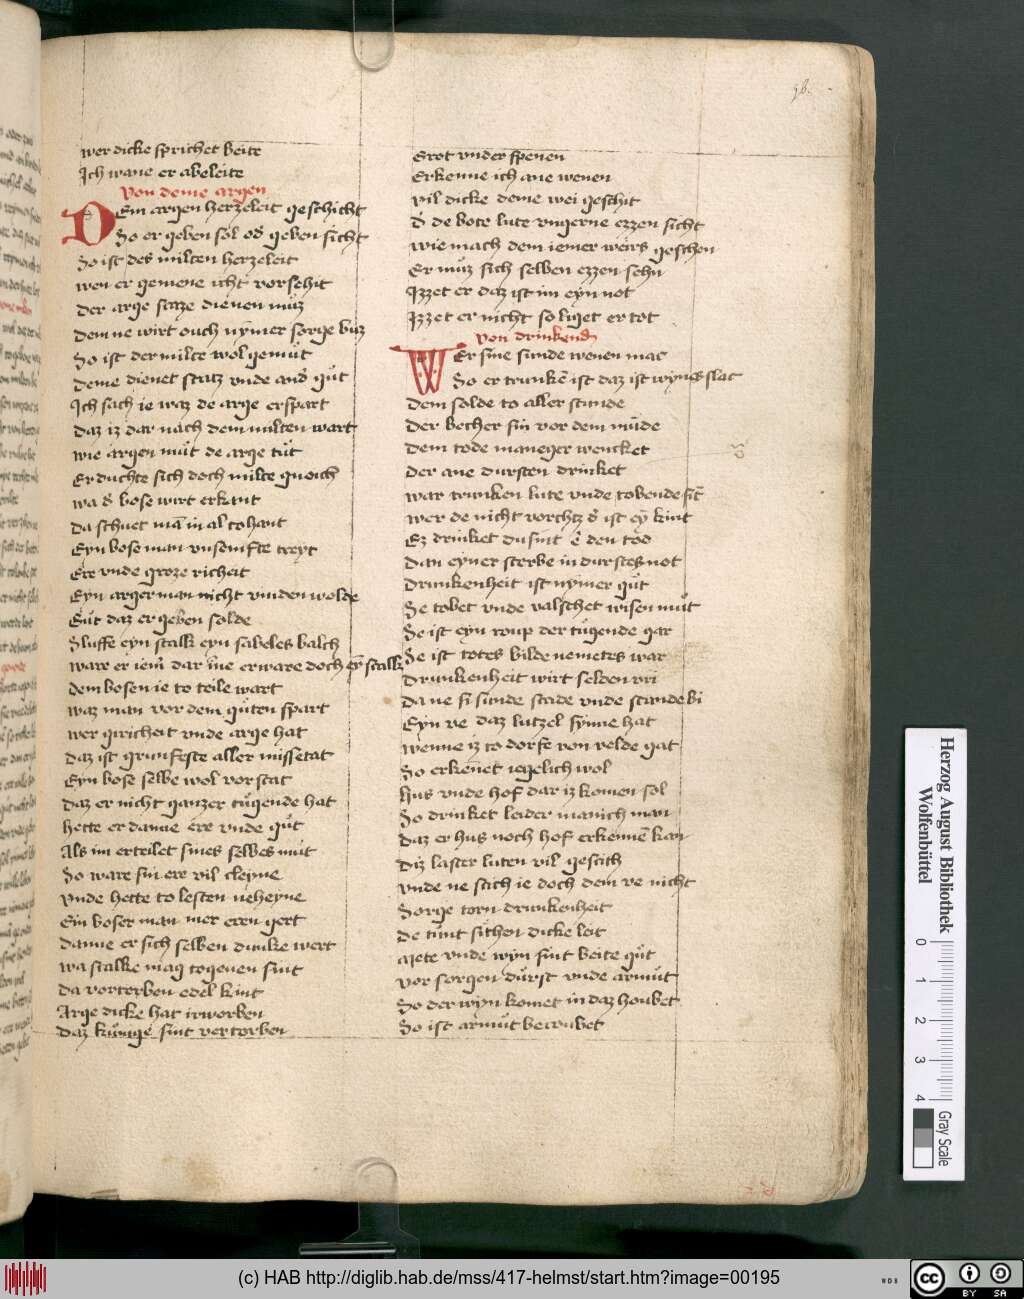 58.
wer dicke sprichet beite
Ich wane er abeleite
Von deme argen
Dem argen herzeleit geschicht
So er geben sol od̄ geben sicht
So ist des milten herzeleit
wen er gemeine icht vorsehit
der arge scatze dienen mūz
Dem ne wirt ouch nymer sorge būz
So ist der milte wol gemūt
Deme dienet scatz vnde and̄ gūt
Ich sach ie waz de arge erspart
Daz iz dar nach dem milten wart
wie argen mūt de arge tūt
Er duchte sich doch milte
wa d̄ bose wirt erkant
Da schuet mā in al tohant
Eyn bose man vnsemfte treyt
Ere vnde groze richeit
Eyn arger man nicht vinden wolde
Gūt daz er geben solde
Sluffe eyn stalk eyn sabeles balch
ware er iem̄ dar īne er ware doch eȳ stalk
dem bosen ie to teile wart
waz man vor dem gūten spart
wer giricheit vnde arge hat
Daz ist gruntfeste aller missetat
Eyn bose selbe wol vorstat
Daz er nicht ganzer tūgende hat
Hette er danne ere vnde gūt
Als im erteilet sines selbes mūt
So ware sin ere vil cleyne
Vnde hette to lesten neheyne
Ein boser man mer eren gert
Danne er sich selben dunke wert
wa stalke mag togenen sint
Da vorterben edel kint
Arge dicke hat irworben
Daz kūnige sint vertorben
Brot vnder spenen
Erkenne ich ane wenen
Vil dicke deme wei geschit
d̄ de bote lute vngerne ezzen sicht
wie mach dem iemer wers geschen
Er mūz sich selben ezzen sehn
Izzet er daz ist im eyn not
Izzet er nicht so liget er tot
Von drinkend̄
Wer sine sunde wenen mac
So er trunkē ist daz ist wynes slac
Dem solde to aller stunde
Der becher sin vor dem mūde
Dem tode maneger wencket
Der ane dursten drinket
war trunken lute vnde tobende sīt
wer de nicht vorchtz d̄ ist eȳ kint
Ez drinket dusint ē den tod
Dan eyner sterbe in durstes not
Drunkenheit ist nymer gūt
Se tobet vnde valschet wisen mūt
Se ist eyn roup der tūgende gar
Se ist totes bilde nemetes war
Drunkenheit wirt selden vri
Da ne si sunde scade vnde scande bi
Eyn ve daz lutzel synne hat
wenne iz to dorfe von velde gat
So erkenet iegelich wol
Hus vnde hof dar iz komen sol
So drinket leider manich man
Daz er hus noch hof erkennē kan
Diz laster luten vil gescith
Vnde ne scach ie doch dem ve nicht
Sorge torn drunkenheit
De tunt sithen dicke leit
Mete vnde wyn sint beite gūt
Vor sorgen dūrst vnde armūt
So der wyn komet in daz houbet
So ist armūt berоubet
Herzog August Bibliothek
Wolfenbüttel
0 1 2 3 4
Gray Scale
(c) HAB http://diglib.hab.de/mss/417-helmst/start.htm?image=00195
WDB
cc BY SA